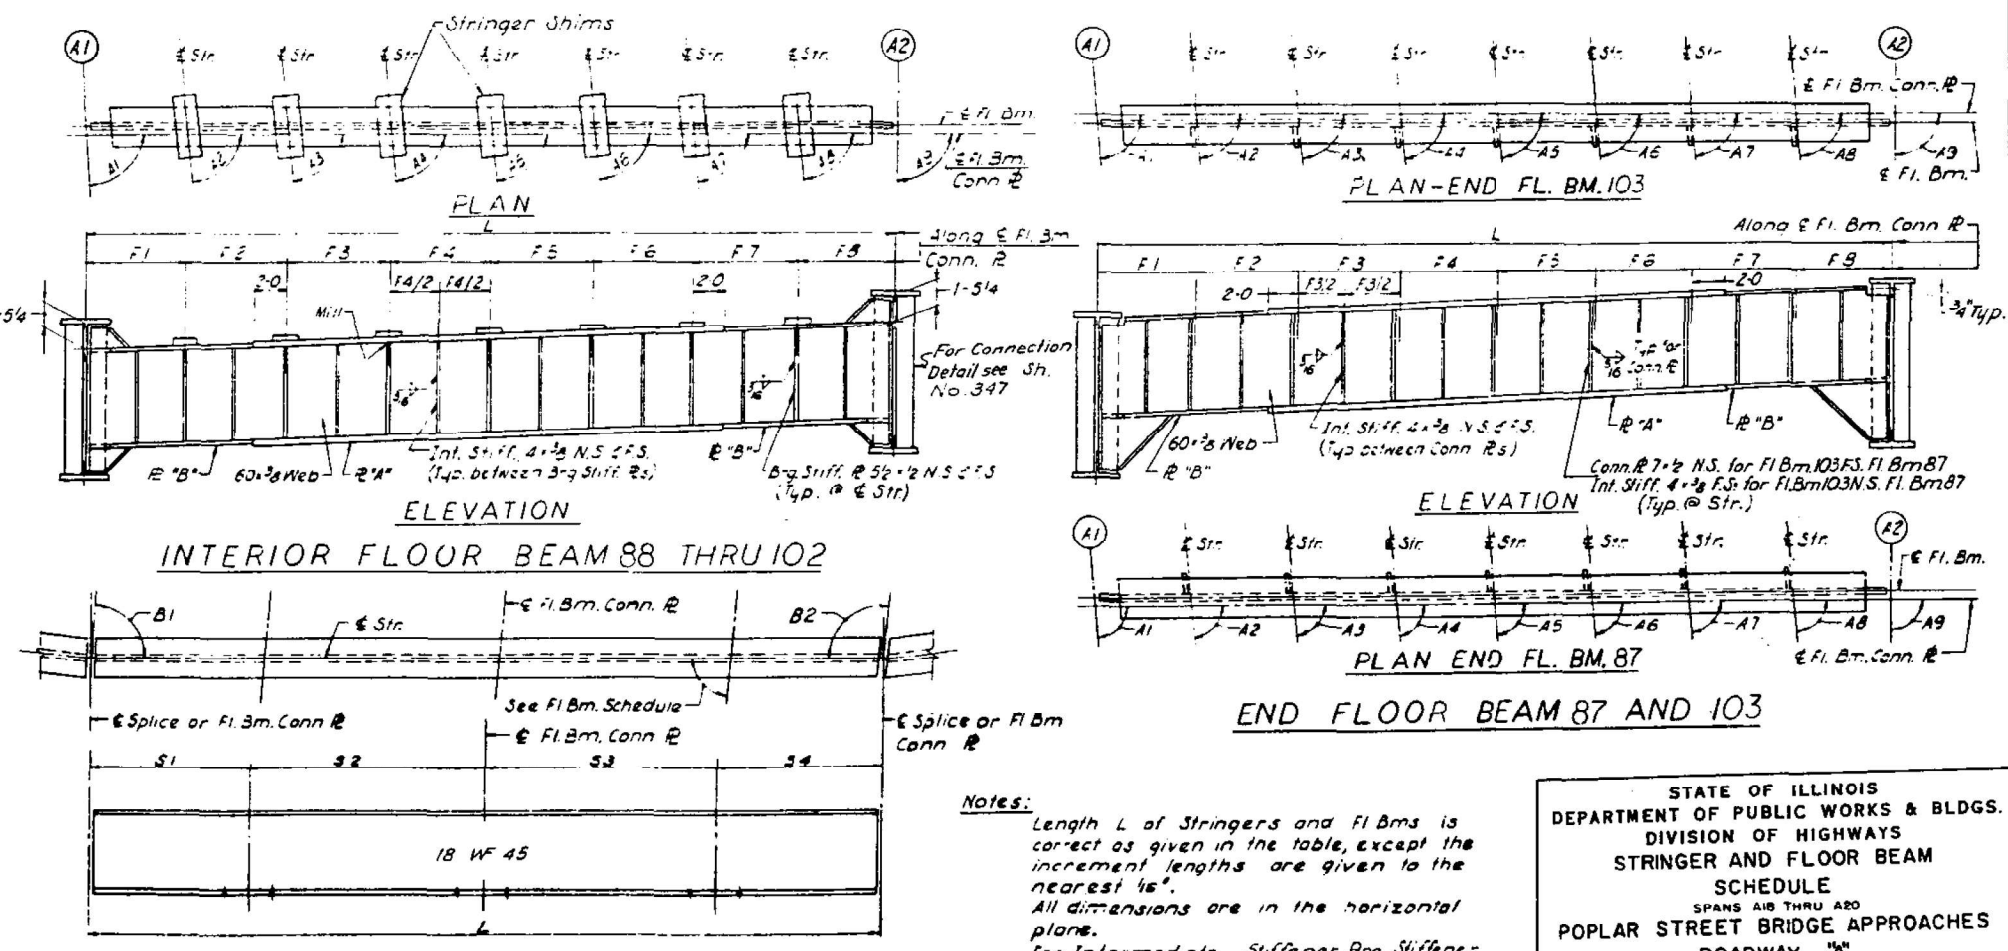 Stringer Shims
A1
℄ Str.
℄ Str.
℄ Str.
℄ Str.
℄ Str.
℄ Str.
℄ Str.
A2
℄ Fl. Bm.
℄ Fl. Bm.
Conn ℞
A1
A2
A3
A4
A5
A6
A7
A8
A9
PLAN
L
Along ℄ Fl. Bm
Conn. ℞
F1
F2
F3
F4
F5
F6
F7
F8
2-0
F4/2
F4/2
2-0
1-5¼
Mill
5/16
5/16
For Connection
Detail see Sh.
No. 347
℞ "B"
60×⅜ Web
℞ "A"
Int. Stiff. 4×⅜ N.S. & F.S.
(Typ. between Brg Stiff. ℞s)
℞ "B"
Brg. Stiff. ℞ 5½×½ N.S. & F.S
(Typ. @ ℄ Str.)
ELEVATION
INTERIOR FLOOR BEAM 88 THRU 102
B1
℄ Fl. Bm. Conn. ℞
℄ Str.
B2
See Fl Bm. Schedule
℄ Splice or Fl. Bm. Conn ℞
℄ Fl. Bm. Conn ℞
℄ Splice or Fl Bm
Conn ℞
S1
S2
S3
S4
18 WF 45
L
A1
℄ Str.
℄ Str.
℄ Str.
℄ Str.
℄ Str.
℄ Str.
℄ Str.
A2
℄ Fl Bm. Conn. ℞
A1
A2
A3
A4
A5
A6
A7
A8
A9
℄ Fl. Bm.
PLAN-END FL. BM. 103
L
Along ℄ Fl. Bm. Conn ℞
F1
F2
F3
F4
F5
F6
F7
F8
2-0
F3/2
F3/2
2-0
¾" Typ.
5/16
5/16
Conn. ℞
60×⅜ Web
℞ "B"
Int. Stiff. 4×⅜ N.S. & F.S.
(Typ between Conn ℞s)
℞ "A"
℞ "B"
Conn. ℞ 7×½ N.S. for Fl Bm. 103 F.S. Fl. Bm 87
Int. Stiff. 4×⅜ F.S. for Fl. Bm 103 N.S. Fl. Bm 87
(Typ. @ Str.)
ELEVATION
A1
℄ Str.
℄ Str.
℄ Str.
℄ Str.
℄ Str.
℄ Str.
℄ Str.
A2
℄ Fl. Bm.
A1
A2
A3
A4
A5
A6
A7
A8
A9
℄ Fl. Bm. Conn. ℞
PLAN END FL. BM. 87
END FLOOR BEAM 87 AND 103
Notes:
Length L of Stringers and Fl Bms is
correct as given in the table, except the
increment lengths are given to the
nearest 1/16".
All dimensions are in the horizontal
plane.
For Intermediate Stiffener, Brg Stiffener
STATE OF ILLINOIS
DEPARTMENT OF PUBLIC WORKS & BLDGS.
DIVISION OF HIGHWAYS
STRINGER AND FLOOR BEAM
SCHEDULE
SPANS A18 THRU A20
POPLAR STREET BRIDGE APPROACHES
ROADWAY "A"